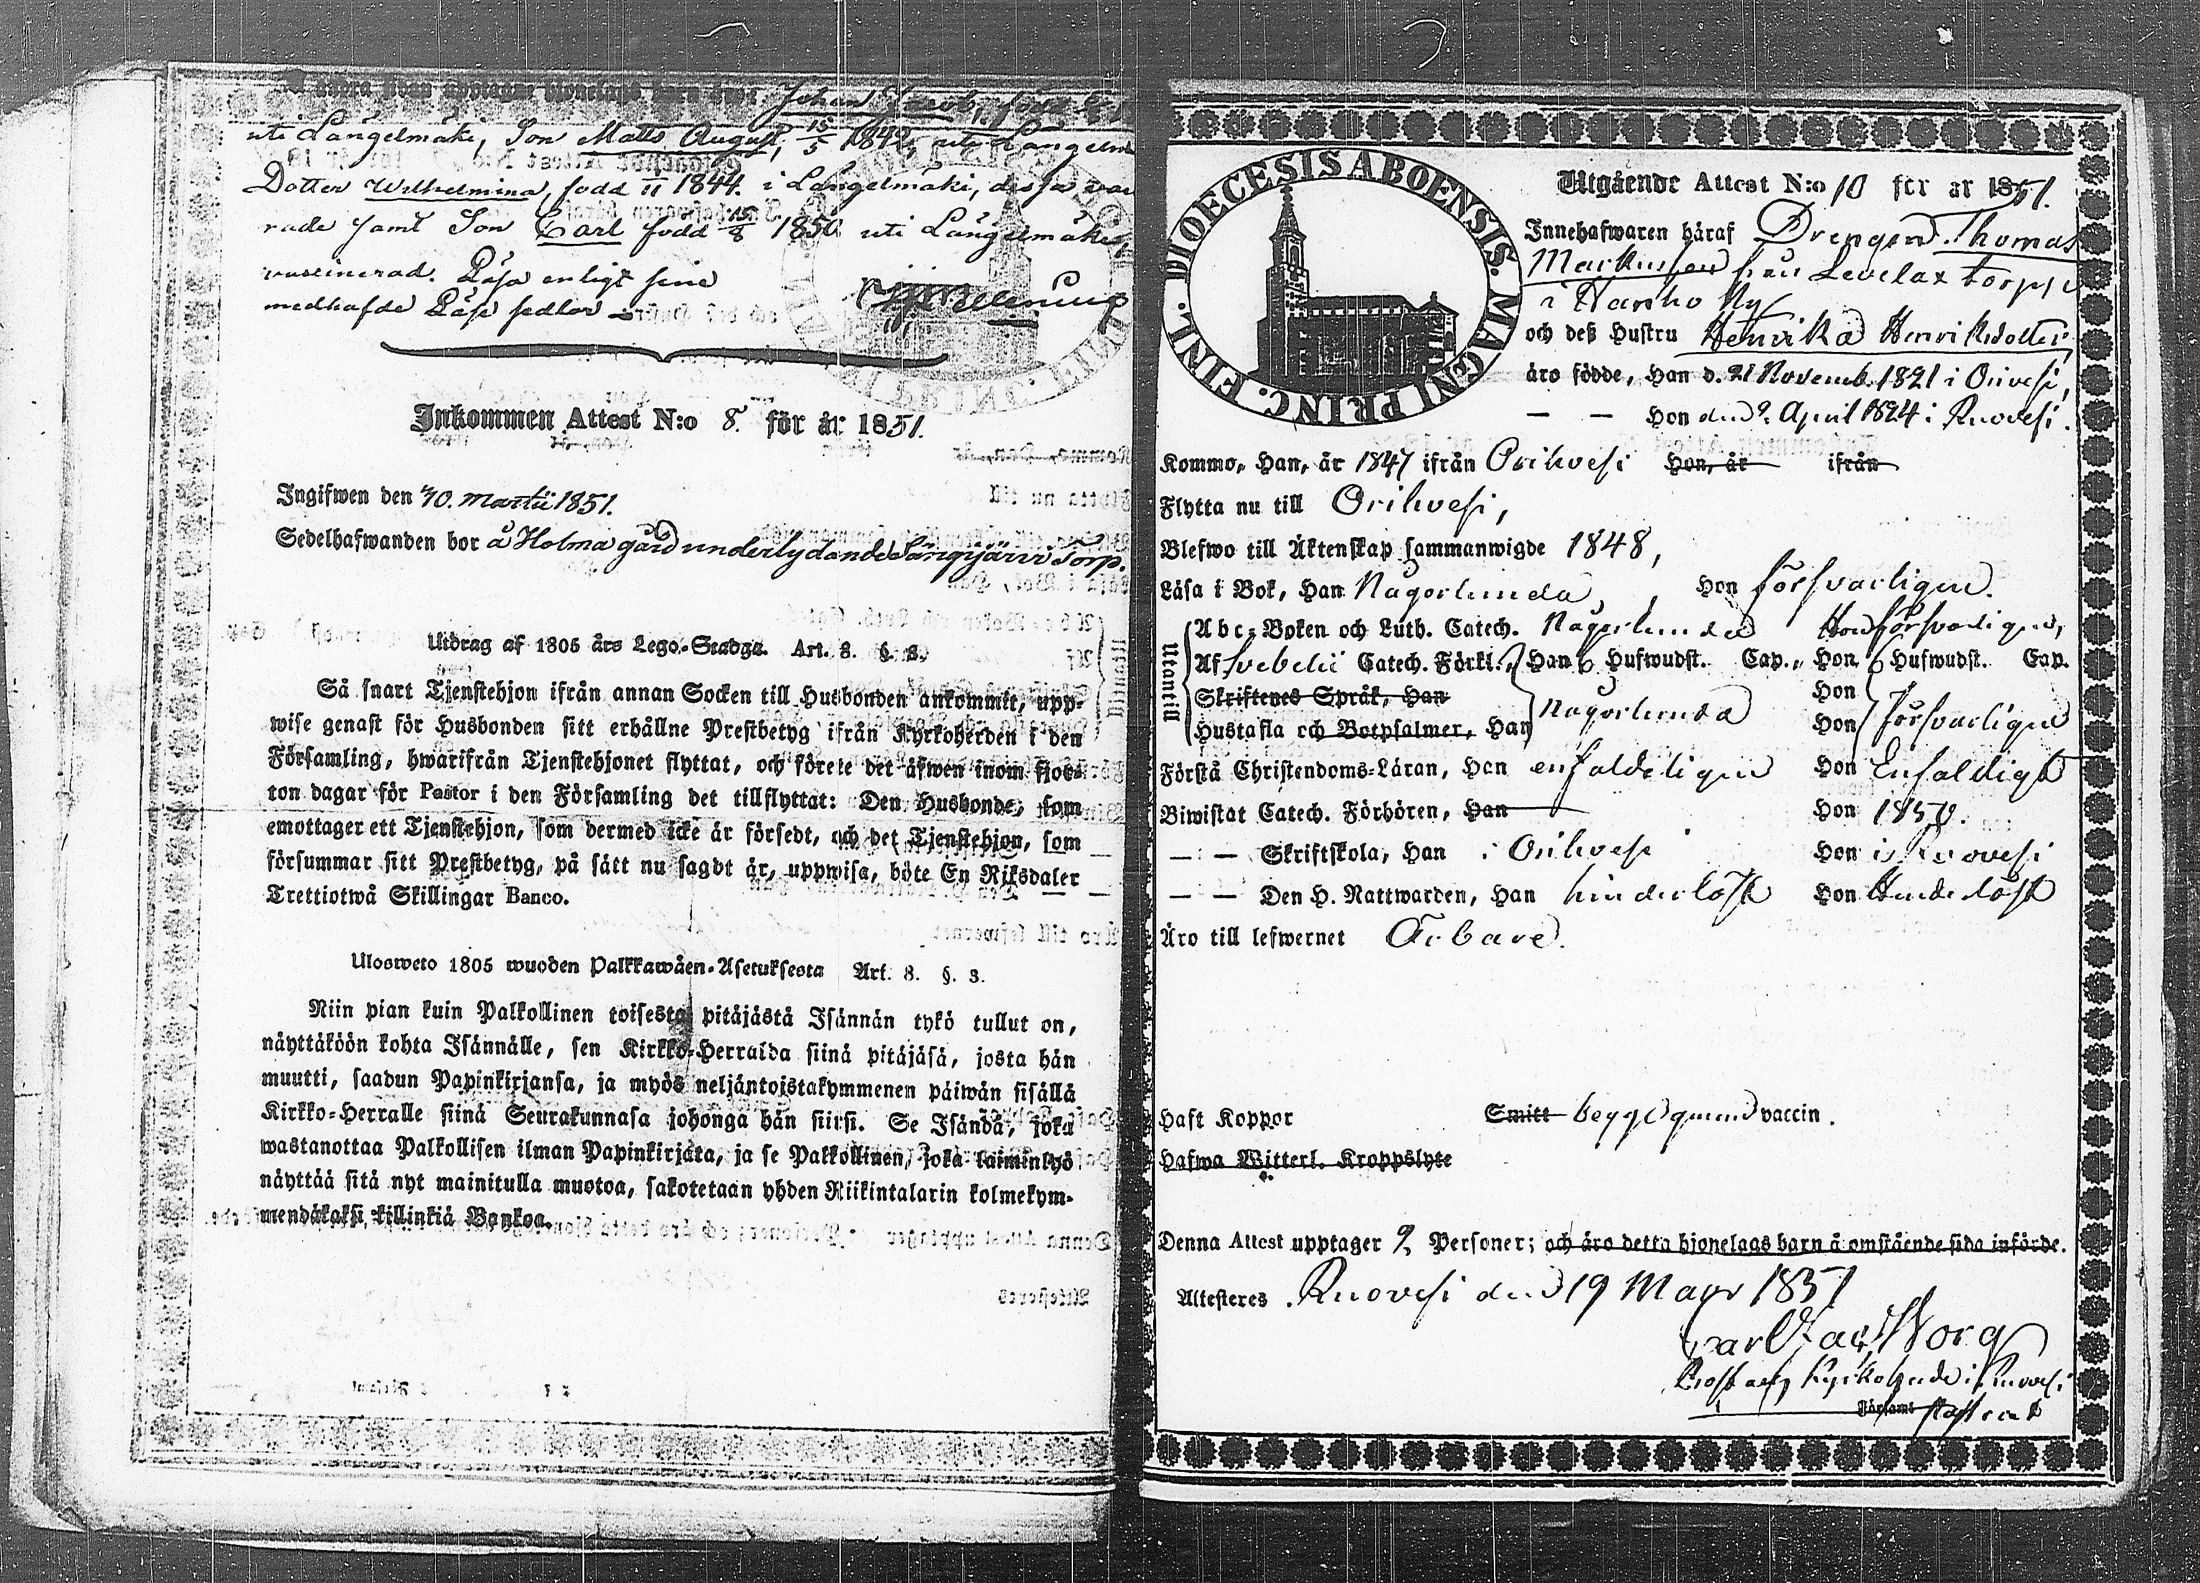 å andra sidan upptagne hjonelags barn äro Johan Jacob, född
uti Längelmäki, Son Matts August, 15/5 1842, uti Längelm
Dotter Wilhelmina, född 1844 i Längelmäki, dessa
rade samt Son Carl född 1850 uti Längelmäki,
vaccinerad. Läsa enligt sine
medhafde Läse sedlar
Inkommen Attest N:o 8. för år 1851.
Ingifwen den 30. Martii 1851.
Sedelhafwanden bor å Holma gård underlydande Särgijärvi Torp.
Utdrag af 1805 års Lego-Stadga. Art. 8. §. 3.
Så snart Tjenstehjon ifrån annan Socken till Husbonden ankommit, upp-
wise genast för Husbonden sitt erhållne Prestbetyg ifrån Kyrkoherden i den
Församling, hwarifrån Tjenstehjonet flyttat, och förete det äfwen inom fjor-
ton dagar för Pastor i den Församling det tillflyttat: Den Husbonde, som
emottager ett Tjenstehjon, som dermed icke är försedt, och det Tjenstehjon, som
försummar sitt Prestbetyg, på sätt nu sagdt är, uppwisa, böte En Riksdaler
Trettiotwå Skillingar Banco.
Ulosweto 1805 wuoden Palkkawäen-Asetuksesta Art. 8. §. 3.
Niin pian kuin Palkollinen toisesta pitäjästä Isännän tykö tullut on,
näyttäköön kohta Isännälle, sen Kirkko-Herralda siinä pitäjäsä, josta hän
muutti, saadun Papinkirjansa, ja myös neljäntoistakymmenen päiwän sisällä
Kirkko-Herralle siinä Seurakunnasa johonga hän siirsi. Se Isändä, joka
wastanottaa Palkollisen ilman Papinkirjata, ja se Palkollinen, joka laiminlyö
näyttää sitä nyt mainitulla muotoa, sakotetaan yhden Riikintalarin kolmekym-
mendäkaksi killinkiä Bankoa.
DIOECESIS ABOENSIS. MAGNI PRINC. FINL.
Utgående Attest N:o 10 för år 1851.
Innehafwaren häraf Drengen Thomas
Markusson från Levelax torp
i Hanho By
och deß Hustru Henrika Henriksdotter
äro födde, Han d. 21 Novemb. 1821 i Orivesi,
— — Hon den 9. April 1824 i Ruovesi.
Kommo, Han, år 1847 ifrån Orihvesi Hon, år ifrån
Flytta nu till Orihvesi,
Blefwo till Äktenskap sammanwigde 1848,
Läsa i Bok, Han Någorlunda, Hon försvarligen.
Utantill
Abc-Boken och Luth. Catech. Någorlunda Hon försvarligen,
Af Svebelii Catech. Förkl., Han 6 Hufwudst. Cap., Hon 6 Hufwudst. Cap.
Skriftenes Språk, Han Hon
Hustafla och Botpsalmer, Han Någorlunda Hon försvarligen
Förstå Christendoms-Läran, Han enfaldeligen Hon Enfaldigt
Biwistat Catech. Förhören, Han Hon 1850.
— — Skriftskola, Han i Orihvesi Hon i Ruovesi
— — Den H. Nattwarden, Han hinderlöst Hon Hinderlöst
Äro till lefwernet Ärbare.
Haft Koppor Smitt begge genom vaccin.
Hafwa Witterl. Kroppslyte
Denna Attest upptager 2 Personer; och äro detta hjonelags barn å omstående sida införde.
Attesteres. Ruovesi den 19 Mars 1851
Carl Bergh
Prost och Kyrkoherde i Ruovesi
Församl.